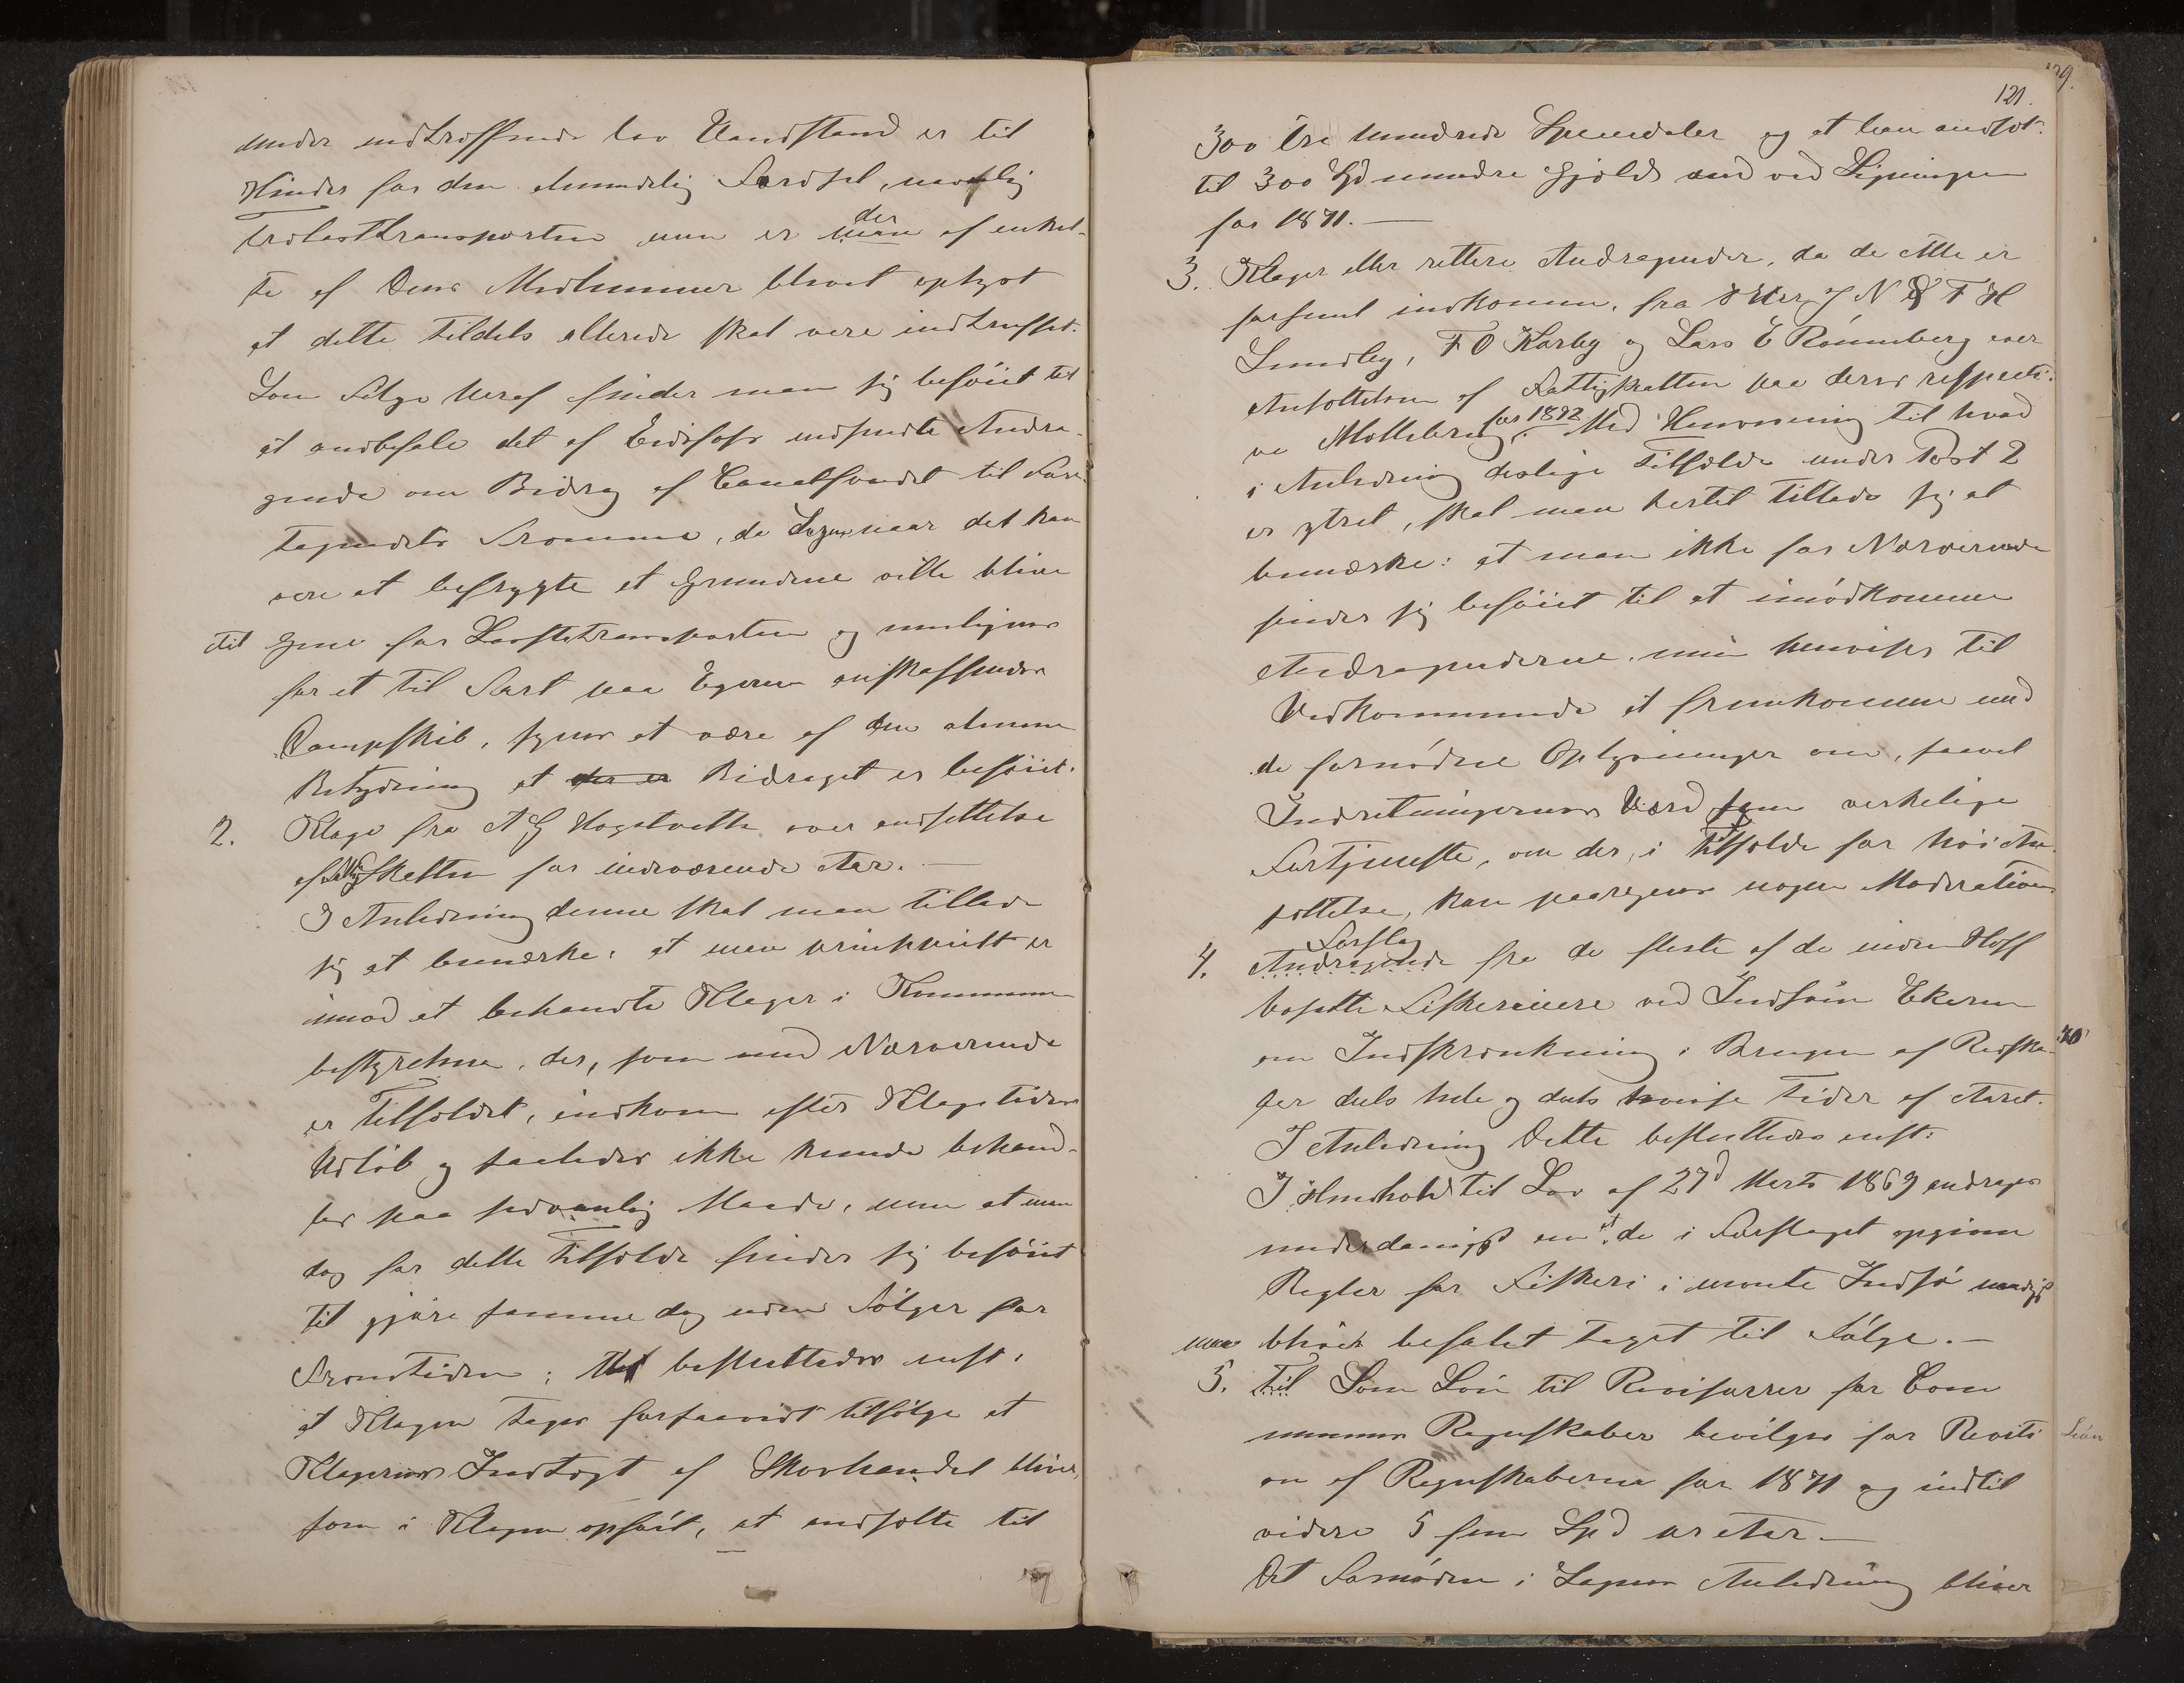 under indtræffende lav Vandstand er til
Hinder for den almindelig Færdsel, navnlig
Trælasttransporten, men er der af enkel-
te af dens Medlemmer blevet oplyst
at dette tildels allerede skal være indtruffet.
Som Følge heraf finder man sig beføiet til
at anbefale det af Eidsfos indsendte Andra-
gende om Bidrag af Canalfondet til Fore-
tagendets Fremme, da Sagen naar det kan
være at befrygte at Grundene ville blive
til Hinder for Lasttransporten og muligens
for et til Fart paa Egeren anskaffendes
Dampskib, synes at være af den almene
Betydning at der er Bidraget er beføiet.
2. Klage fra A G Hogstvette over ansættelse
af Fattigskatten for indeværende Aar. —
I Anledning denne skal man tillade
sig at bemærke: at man principielt er
imod at behandle Klager i Kommune-
bestyrelsen, der, som med Nærværende
er Tilfældet, indkom efter Klagetidens
Udløb og saaledes ikke kunde behand-
les paa sedvanlig Maade, men at man
dog for dette Tilfælde finder sig beføiet
til gjøre samme dog uden Følger for
Fremtiden; Thi besluttedes enst.
at Klagen tages forsaavidt tilfølge at
Klagerens Indtægt af Skovhandel bliver,
som i Klagen opført, at ansætte til
121.
300 tre hundrede Speciedaler og at han ansæt.
til 300 Spd mindre Gjæld end ved Ligningen
for 1871. —
3. Klager eller rettere Andragender, da de Alle er
forsent indkomne, fra J N & F H
Lundby, F O Korby og Lars E Rønneberg over
Ansættelsen af Fattigskatten paa deres respecti-
ve Møllebrug for 1872. Med Henvisning til hvad
i Anledning deslige Tilfælde under Post 2
er ytret, skal man hertil tillade sig at
bemærke: at man ikke for Nærværende
finder sig beføiet til at imødkomme
Andragenderne, men henvises til
Vedkommende at fremkomme med
de fornødne Oplysninger om, saavel
Indretningernes Værd som virkelige
Fortjeneste, om der, i Tilfælde for høi An-
sættelse, kan paaregnes nogen Moderation
4. Forslag Andragende fra de fleste af de inden Hoff
bosatte Fiskerieiere ved Indsøen Ekeren
om Indskrænkning i Brugen af Redska-
ber dels hele og dels hvisse Tider af Aaret.
I Anledning Dette besluttedes enst:
I Henhold til Lov af 27d Marts 1869 andrages
underdanigst om at de i Forslaget opgivne
Regler for Fiskeri i nævnte Indsø naadigst
maa blive befalet taget til Følge. —
5. Til Som Løn til Revisorer for Com
munens Regnskaber bevilges for Revisi
on af Regnskaberne for 1871 og indtil
videre 5 fem Spd pr Aar. —
Det Fornødne i Sagens Anledning bliver